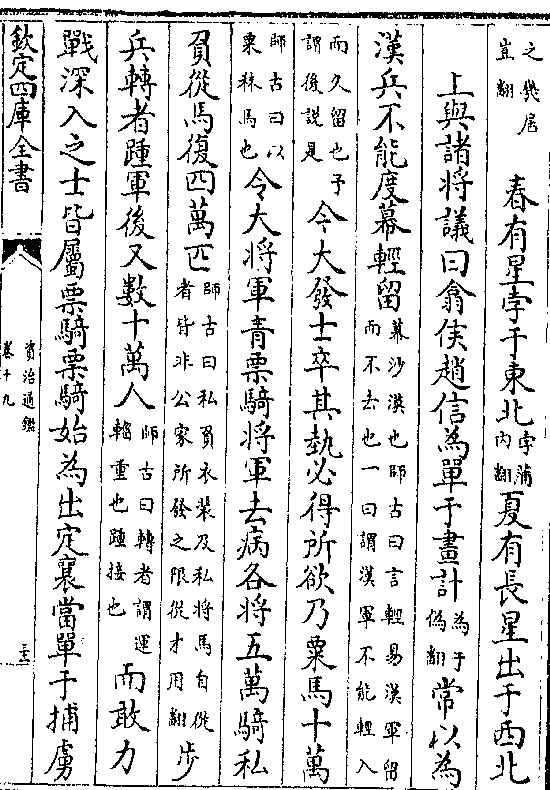 之樊居豈翻　春有星孛于東北孛蒲內翻夏有長星出于西北
上與諸將議曰翕侯趙信為單于畫計為于偽翻常以為
漢兵不能度幕輕留幕沙漠也師古曰言輕易漢軍留而不去也一曰謂漢軍不能輕入
而久留也予謂後說是今大發士卒其埶必得所欲乃粟馬十萬
師古曰以粟秣馬也令大將軍青票騎將軍去病各將五萬騎私
負從馬復四萬匹師古曰私負衣裝及私將馬自從者皆非公家所發之限從才用翻步
兵轉者踵軍後又數十萬人師古曰轉者謂運輜重也踵接也而敢力
戰深入之士皆屬票騎票騎始為出定襄當單于捕虜
欽定四庫全書
資治通鑑
卷十九